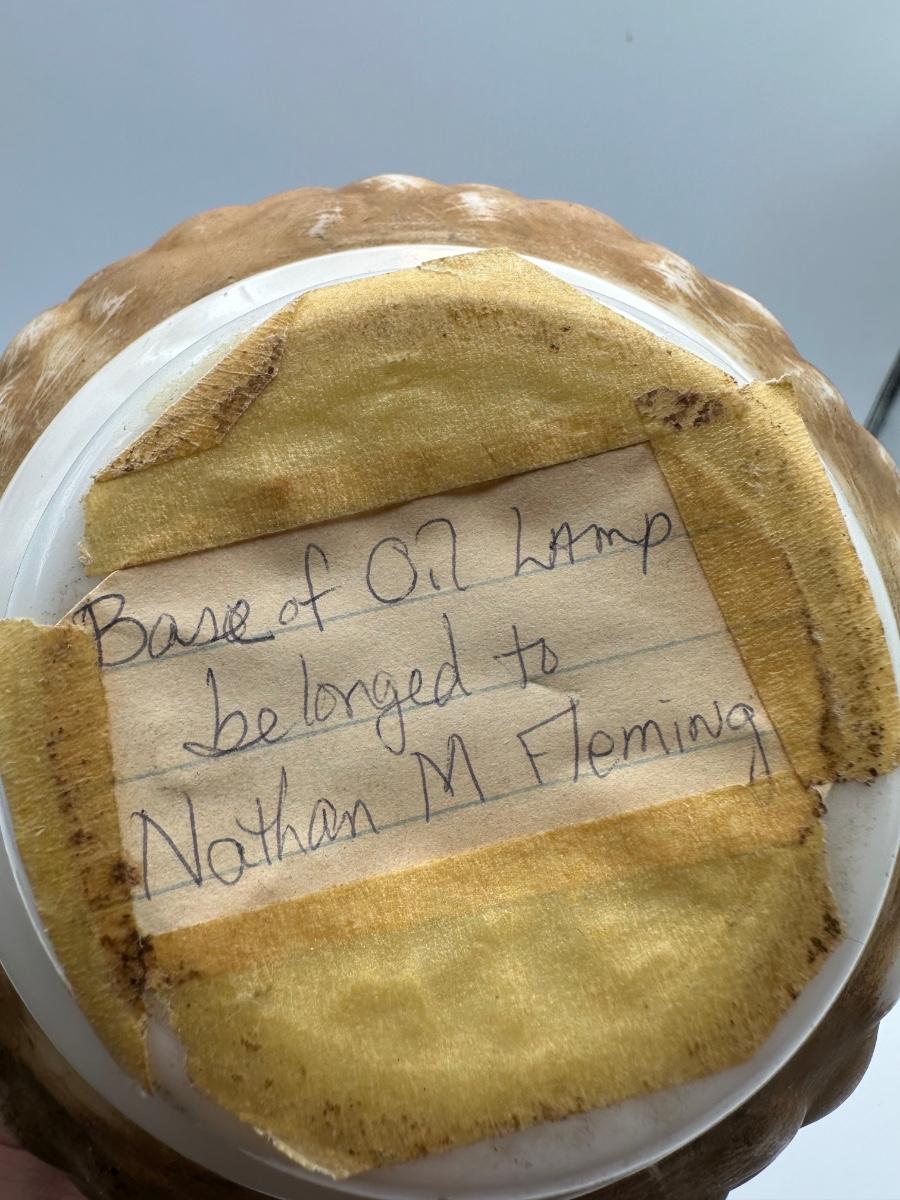 Base of Oil Lamp
belonged to
Nathan M Fleming